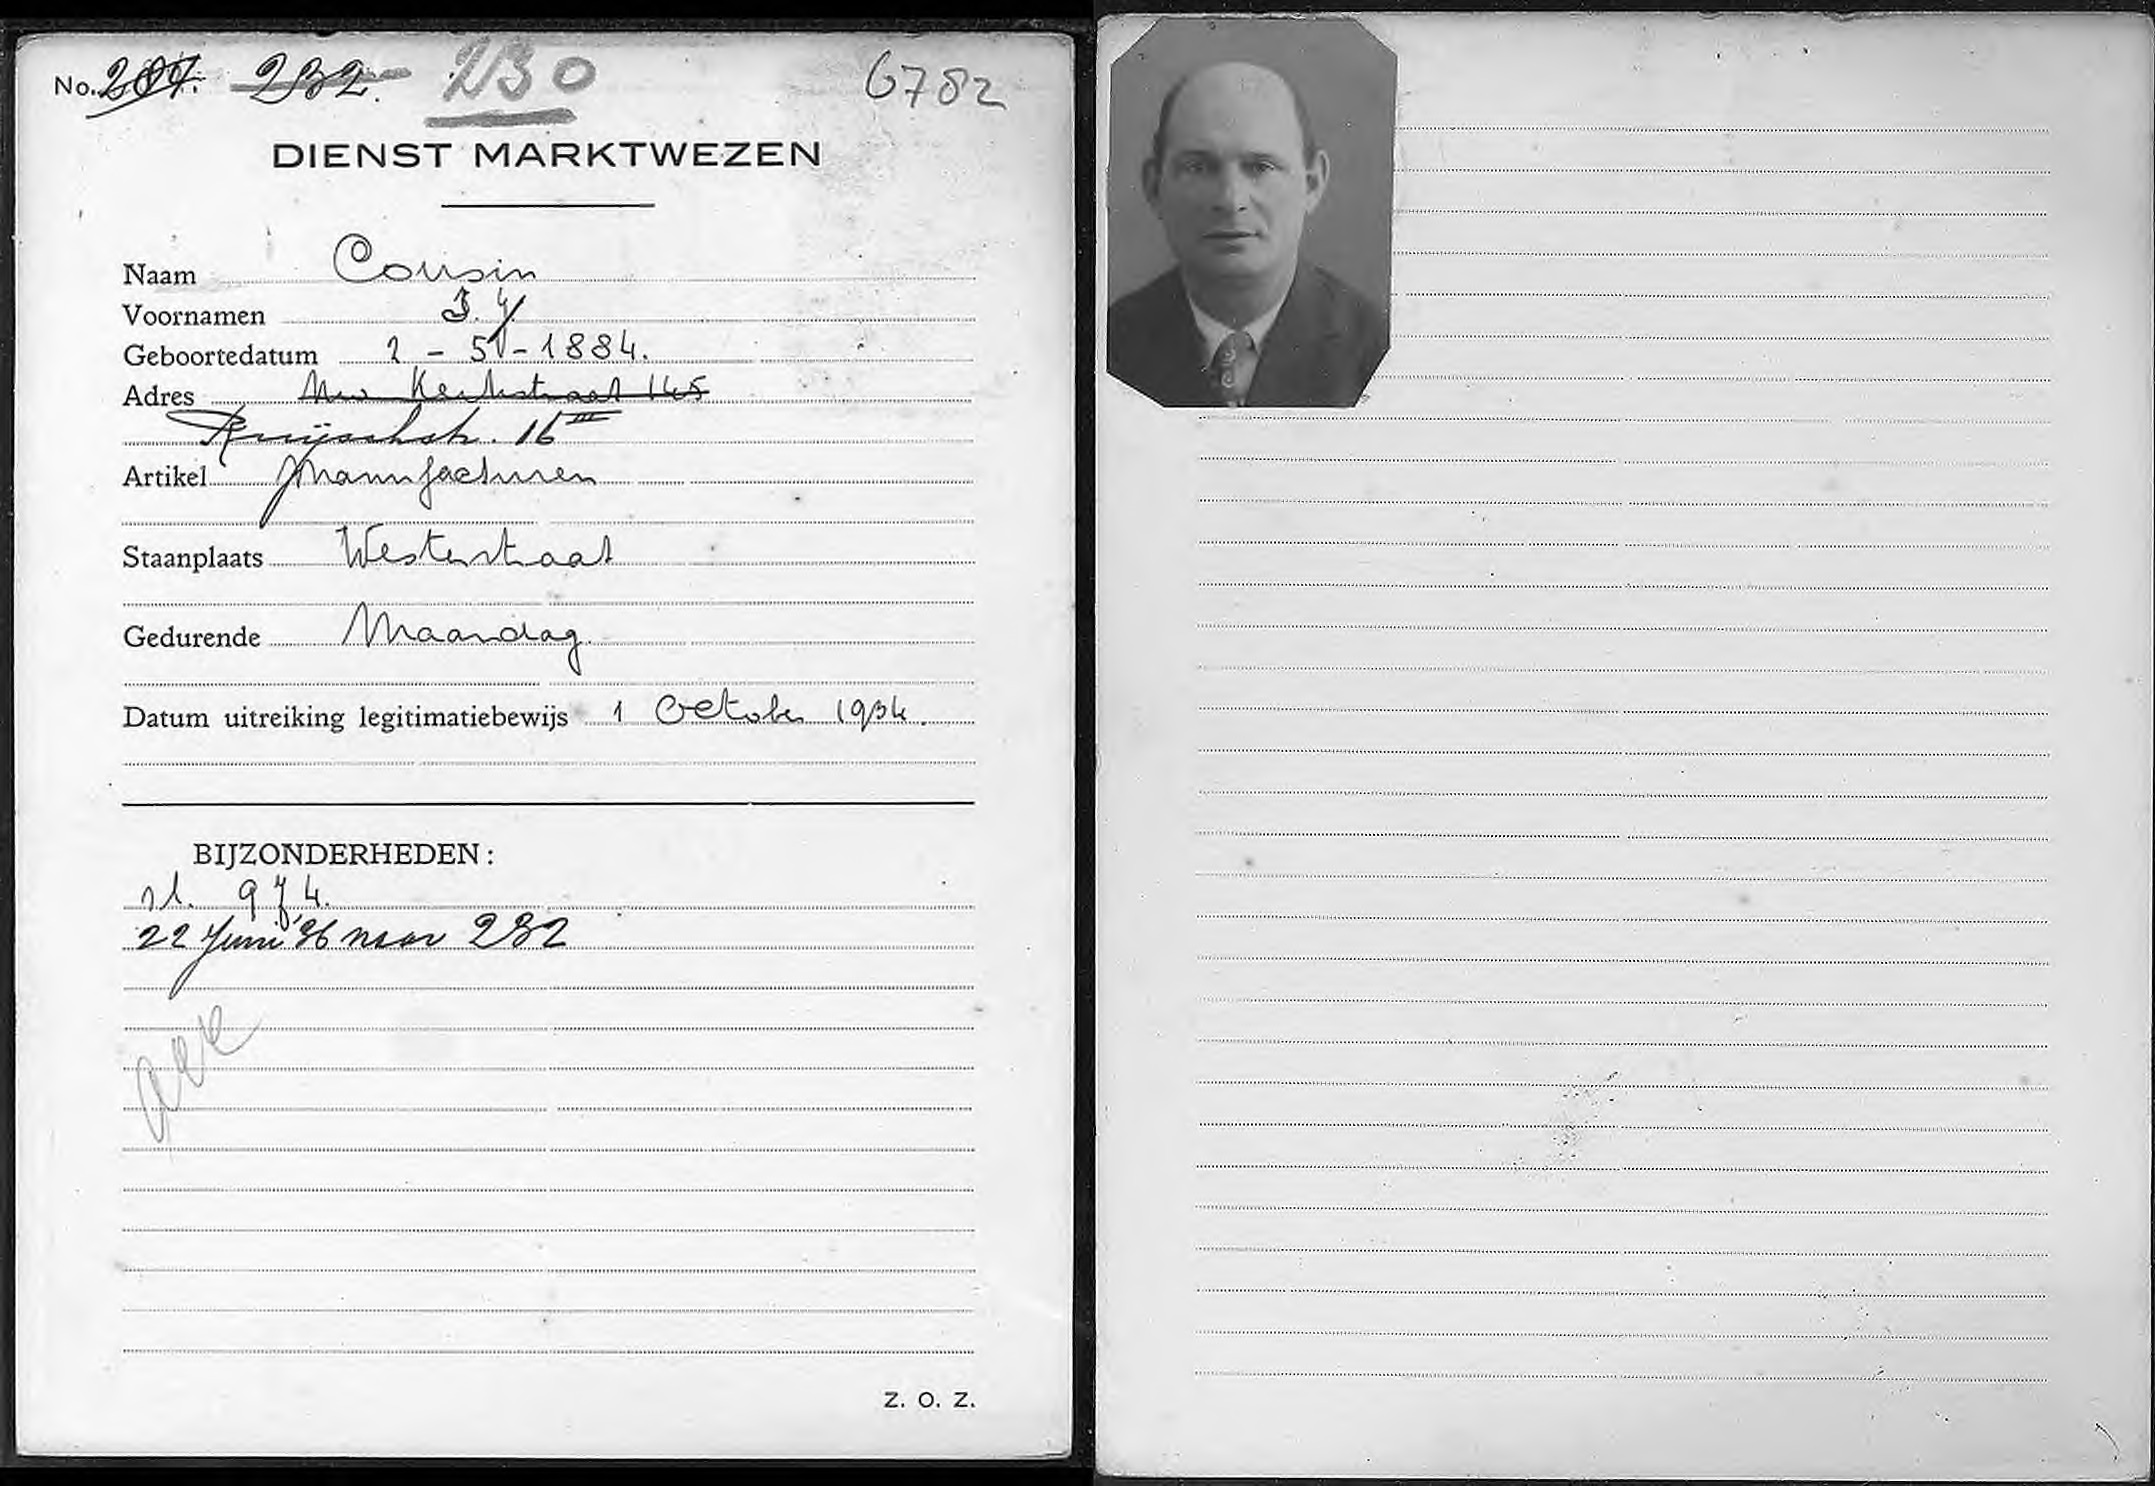 No. 207. 232. 230 6782
DIENST MARKTWEZEN
Naam Cousin
Voornamen
Geboortedatum 2 - 5 - 1884.
Adres Nw Kerkstraat 145
Ruijschstr. 16 III
Artikel Manufacturen
Staanplaats Westerstraat
Gedurende Maandag.
Datum uitreiking legitimatiebewijs 1 October 1934.
BIJZONDERHEDEN:
974.
22 Juni '36 naar 232
Z. O. Z.